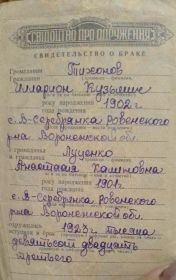 СВІДОЦТВО ПРО ОДРУЖЕННЯ
СВИДЕТЕЛЬСТВО О БРАКЕ
Громадянин
Гражданин
Тихонов
Илларион Кузьмич
року народження
года рождения
1902 г.
с. В-Серебрянка Ровенского
р-на Воронежской обл.
та громадянка
и гражданка
Луценко
Анастасия
року народження
года рождения
1901 г.
с. В-Серебрянка Ровенского
р-на Воронежской обл.
одружились
вступили в брак
1923 г. тысяча
девятьсот двадцать
третьего